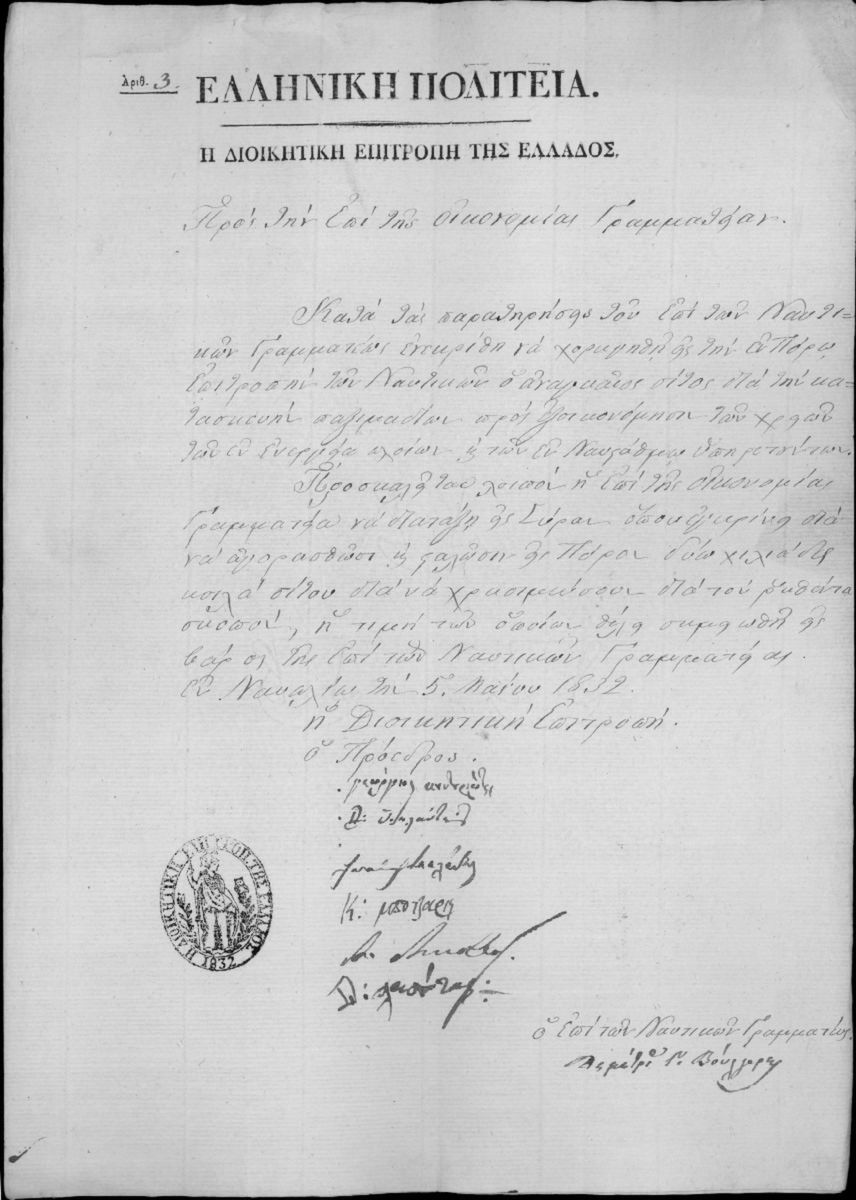 Ἀριθ. 3.
ΕΛΛΗΝΙΚΗ ΠΟΛΙΤΕΙΑ.
Η ΔΙΟΙΚΗΤΙΚΗ ΕΠΙΤΡΟΠΗ ΤΗΣ ΕΛΛΑΔΟΣ.
Πρὸς τὴν Ἐπὶ τῆς Οἰκονομίας Γραμματείαν.
Κατὰ τὰς παρατηρήσεις τοῦ Ἐπὶ τῶν Ναυτι-
κῶν Γραμματέως ἐνεκρίθη νὰ χορηγηθῇ εἰς τὴν ἐν Πόρῳ
Ἐπιτροπὴν τῶν Ναυτικῶν ὁ ἀναγκαῖος σῖτος διὰ τὴν κα-
τασκευὴν παξιμαδίων πρὸς ἐξοικονόμησιν τῶν χρειῶν
τῶν ἐν ἐνεργείᾳ πλοίων καὶ τῶν ἐν Ναυστάθμῳ ὑπηρετούντων.
Προσκαλεῖται λοιπὸν ἡ Ἐπὶ τῆς Οἰκονομίας
Γραμματεία νὰ διατάξῃ εἰς Σύραν ὅπου ἐγκρίνει διὰ
νὰ ἀγορασθῶσι καὶ σταλῶσιν εἰς Πόρον δύω χιλιάδες
κοιλὰ σίτου διὰ νὰ χρησιμεύσουν διὰ τὸν ῥηθέντα
σκοπὸν, ἡ τιμὴ τῶν ὁποίων θέλει σημειωθῆ εἰς
βάρος τῆς Ἐπὶ τῶν Ναυτικῶν Γραμματείας.
Ἐν Ναυπλίῳ τὴν 5 Μαΐου 1832.
ἡ Διοικητικὴ Ἐπιτροπή.
ὁ Πρόεδρος.
γεώργιος κουντουριώτης
Δ: ὑψηλάντης
Κ: μπότζαρης
Η ΔΙΟΙΚΗΤΙΚΗ ΕΠΙΤΡΟΠΗ ΤΗΣ ΕΛΛΑΔΟΣ 1832
ὁ Ἐπὶ τῶν Ναυτικῶν Γραμματεύς.
Δημήτριος Γ. Βούλγαρης